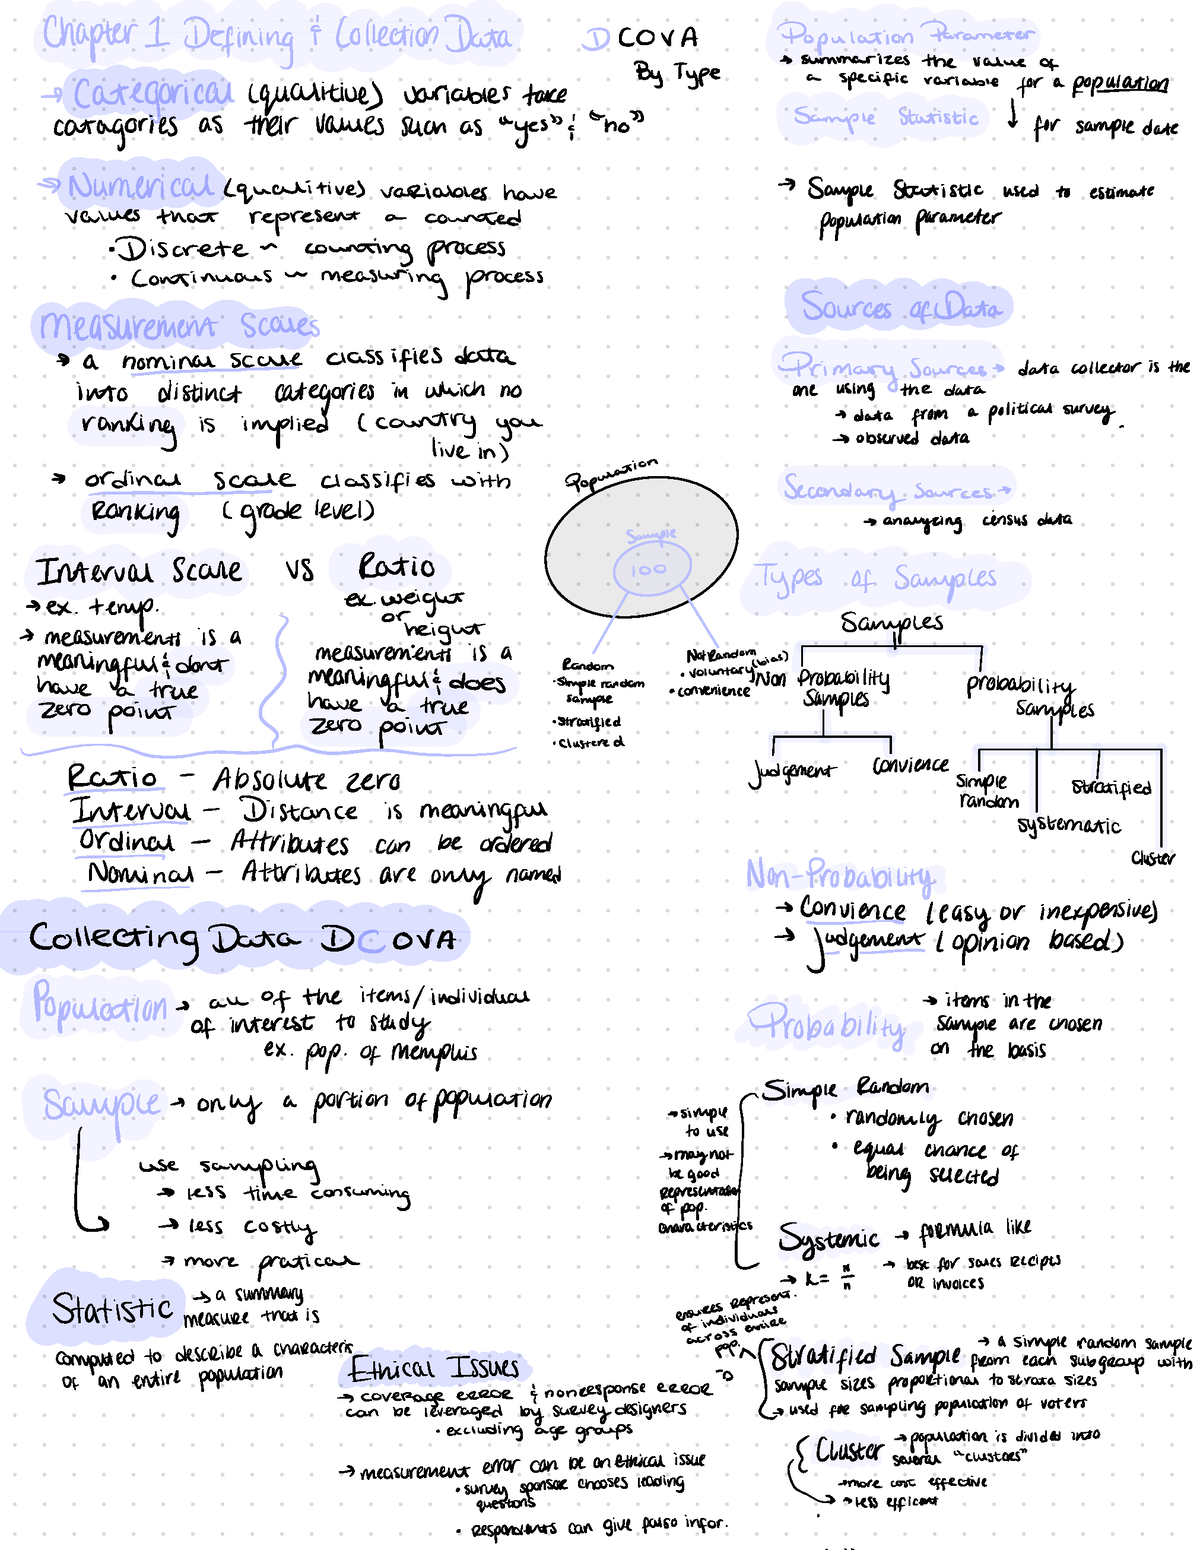 Chapter 1 Defining & Collection Data
→ Categorical (qualitive) variables take
catagories as their values such as "yes" & "no"
→ Numerical (qualitive) variables have
values that represent a counted
• Discrete ~ counting process
• Continuous ~ measuring process
Measurement Scales
→ a nominal scale classifies data
into distinct categories in which no
ranking is implied (country you
live in)
→ ordinal scale classifies with
Ranking (grade level)
Interval Scale vs Ratio
→ ex. temp.
→ measurements is a
meaningful & dont
have a true
zero point
ex. weight
or
height
measurements is a
meaningful & does
have a true
zero point
Ratio – Absolute zero
Interval – Distance is meaningful
Ordinal – Attributes can be ordered
Nominal – Attributes are only named
Collecting Data DCOVA
Population → all of the items/individual
of interest to study
ex. pop. of Memphis
Sample → only a portion of population
use sampling
→ less time consuming
→ less costly
→ more pratical
Statistic → a summary
measure that is
computed to describe a characteris
of an entire population
Ethical Issues
→ coverage error & nonresponse error
can be leveraged by survey designers
• excluding age groups
→ measurement error can be an Ethical issue
• survey sponsor chooses leading
questions
• Respondents can give falso infor.
DCOVA
By Type
Population
Sample
100
Random
• Simple random
sample
• Stratified
• Clustered
Not Random
• voluntary (bias)
• convenience
Population Parameter
→ summarizes the value of
a specific variable for a population
Sample Statistic
↓ for sample date
→ Sample Statistic used to estimate
population parameter
Sources of Data
Primary Sources → data collector is the
one using the data
→ data from a political survey
→ observed data
Secondary Sources →
→ analyzing census data
Types of Samples
Samples
Non Probability
Samples
probability
Samples
Judgement
Convience
Simple
random
systematic
Stratified
Cluster
Non-Probability
→ Convience (easy or inexpensive)
→ Judgement (opinion based)
Probability
→ items in the
sample are chosen
on the basis
Simple Random
• randomly chosen
• equal chance of
being selected
→ simple
to use
→ may not
be good
Representation
of pop.
characteristics
Systemic → formula like
→ k = N/n
→ best for sales receipts
or invoices
ensures represent.
of individuals
across entire
pop.
Stratified Sample → a simple random sample
from each subgroup with
sample sizes proportional to strata sizes
→ used for sampling population of voters
Cluster → population is divided into
several "clusters"
→ more cost effective
→ less efficent